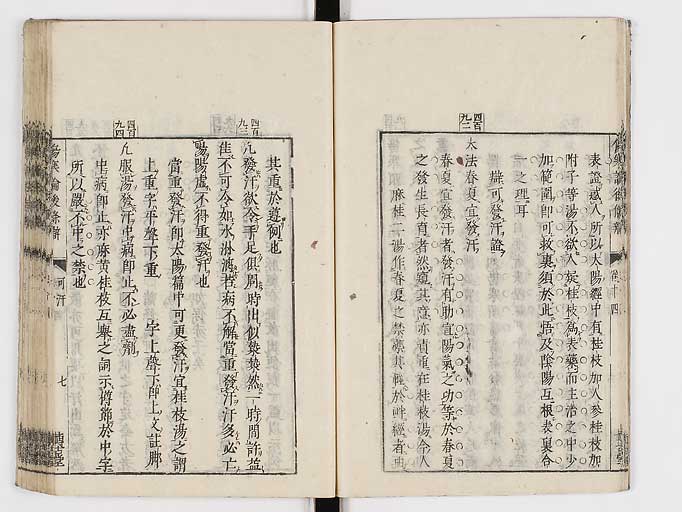 表證惑人所以太陽經中有桂枝加人參桂枝加
附子等湯不欲人疑桂枝為表藥而主治之中少
加範圍即可救裏須於此悟及陰陽互根表裏合
一之理耳
辨可發汗證
四百九二
大法春夏宜發汗
春夏宜發汗者發汗有助宣陽氣之功等於春夏
之發生長育者然
麻桂二湯作春夏之禁
其重於遊徇也
四百九三
凡發汗欲令手足俱周時出似漐漐然一時間許益
佳不可令如水淋漓若病不解當重發汗汗多必亡
陽陽虛不得重發汗也
當重發汗即太陽篇中可更發汗宜桂枝湯之謂
上重字平聲下重字上聲下即上文註脚
四百九四
凡服湯發汗中病即止不必盡劑
中病即止亦麻黃桂枝互舉之詞示樽節於中字
所以嚴不中之禁也
可汗
七